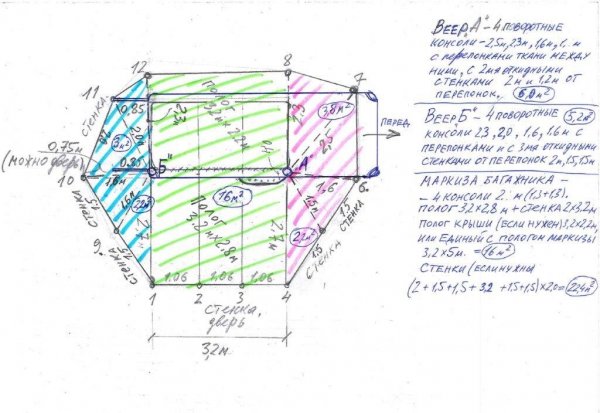 ВЕЕР „А" – 4 ПОВОРОТНЫЕ
КОНСОЛИ – 2,5м, 2,3м, 1,6м, 1,.. м
С ПЕРЕПОНКАМИ ТКАНИ МЕЖДУ
НИМИ, С 2МЯ ОТКИДНЫМИ
СТЕНКАМИ 2м и 1,2м ОТ
ПЕРЕПОНОК. 6,0м²
ВЕЕР „Б" – 4 ПОВОРОТНЫЕ 5,2м²
КОНСОЛИ 2.3, 2,0, 1,6, 1,6 м С
ПЕРЕПОНКАМИ и С 3МЯ ОТКИДНЫМИ
СТЕНКАМИ ОТ ПЕРЕПОНОК 2м, 1,5, 1,5м
МАРКИЗА БАГАЖНИКА –
– 4 КОНСОЛИ 2. м (1,5+1,3).
ПОЛОГ 3,2х2,8 м + СТЕНКА 2х3,2м
ПОЛОГ КРЫШИ (ЕСЛИ НУЖЕН) 3,2х2,2м,
ИЛИ ЕДИНЫЙ С ПОЛОГОМ МАРКИЗЫ
3,2х5м. = 16м²
СТЕНКИ (ЕСЛИ НУЖНЫ
(2+1,5+1,5+3,2 +1,5+1,5)х2,0= 22,4м²
12
8
7
11
СТЕНКА
2,0
0,85
2м²
2,3
ПОЛОГ
3,2м х 2,2м
2,3
3,8м²
2,5
ПЕРЕД
0,75м
(МОЖНО ДВЕРЬ)
0,85
„Б"
„А"
10
1,6м
16м²
1,6
6
1,5
СТЕНКА
1,6м
ПОЛОГ
3,2м х 2,8м
2,7м
2,2м²
1,5
5
1,5
СТЕНКА
9
1,5
СТЕНКА
1,06
1,06
1,06
1
2
3
4
СТЕНКА,
ДВЕРЬ
3,2м